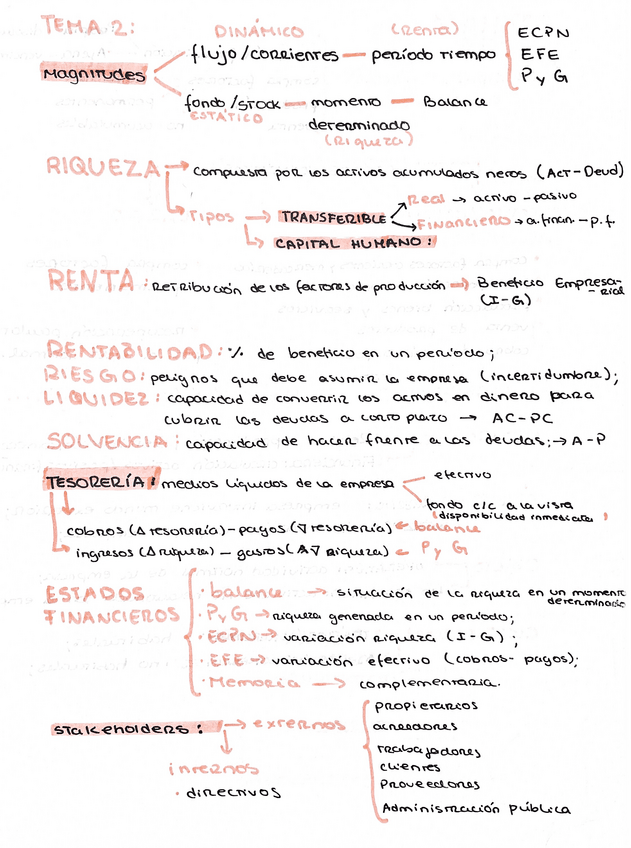 TEMA 2: DINÁMICO (Renta)
Magnitudes
flujo/corrientes — período tiempo
ECPN
EFE
P y G
fondo/stock — momento — Balance
ESTÁTICO determinado
(Riqueza)
RIQUEZA → compuesta por los activos acumulados netos (Act-Deud)
Tipos → TRANSFERIBLE
Real → activo - pasivo
Financiero → a. finan. - p.f.
↳ CAPITAL HUMANO:
RENTA: retribución de los factores de producción ⇒ Beneficio Empresa-
rial
(I-G)
RENTABILIDAD: % de beneficio en un período;
RIESGO: peligros que debe asumir la empresa (incertidumbre);
LIQUIDEZ: capacidad de convertir los activos en dinero para
cubrir las deudas a corto plazo → AC-PC
SOLVENCIA: capacidad de hacer frente a las deudas; → A-P
TESORERÍA: medios líquidos de la empresa
efectivo
fondo c/c a la vista
(disponibilidad inmediata)
cobros (Δ tesorería) - pagos (∇ tesorería) ← balance
ingresos (Δ riqueza) - gastos (∇ riqueza) ← P y G
ESTADOS
FINANCIEROS
· balance → situación de la riqueza en un momento
determinado
· P y G → riqueza generada en un período;
· ECPN → variación riqueza (I-G);
· EFE → variación efectivo (cobros - pagos);
· Memoria → complementaria.
stakeholders: → externos
propietarios
acreedores
trabajadores
clientes
Proveedores
Administración pública
internos
· directivos